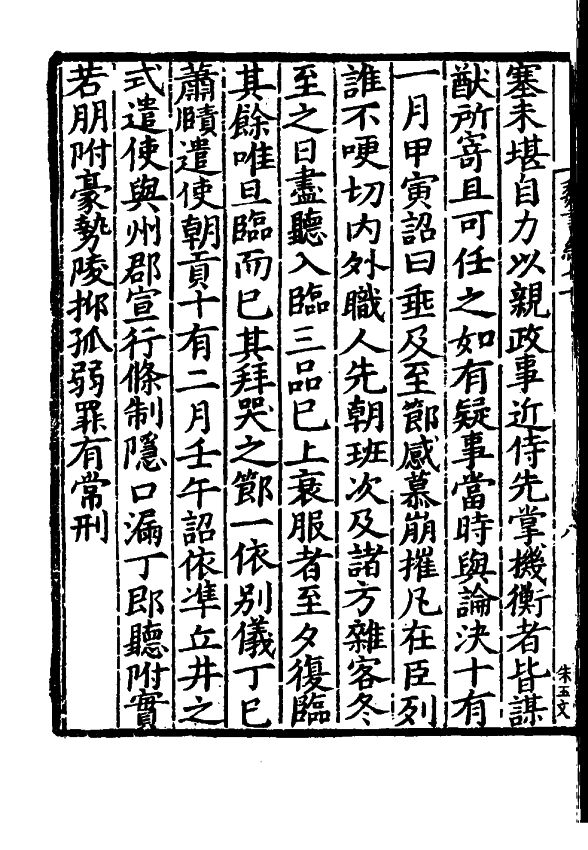 塞未堪自力以親政事近侍先掌機衡者皆謀
猷所寄且可任之如有疑事當時與論決十有
一月甲寅詔曰垂及至節感慕崩摧凡在臣列
誰不哽切内外職人先朝班次及諸方雜客冬
至之日盡聽入臨三品巳上衰服者至夕復臨
其餘唯旦臨而巳其拜哭之節一依别儀丁巳
蕭賾遣使朝貢十有二月壬午詔依準丘井之
式遣使與州郡宣行條制隱口漏丁即聽附實
若朋附豪勢陵抑孤弱罪有常刑
八
朱玉文